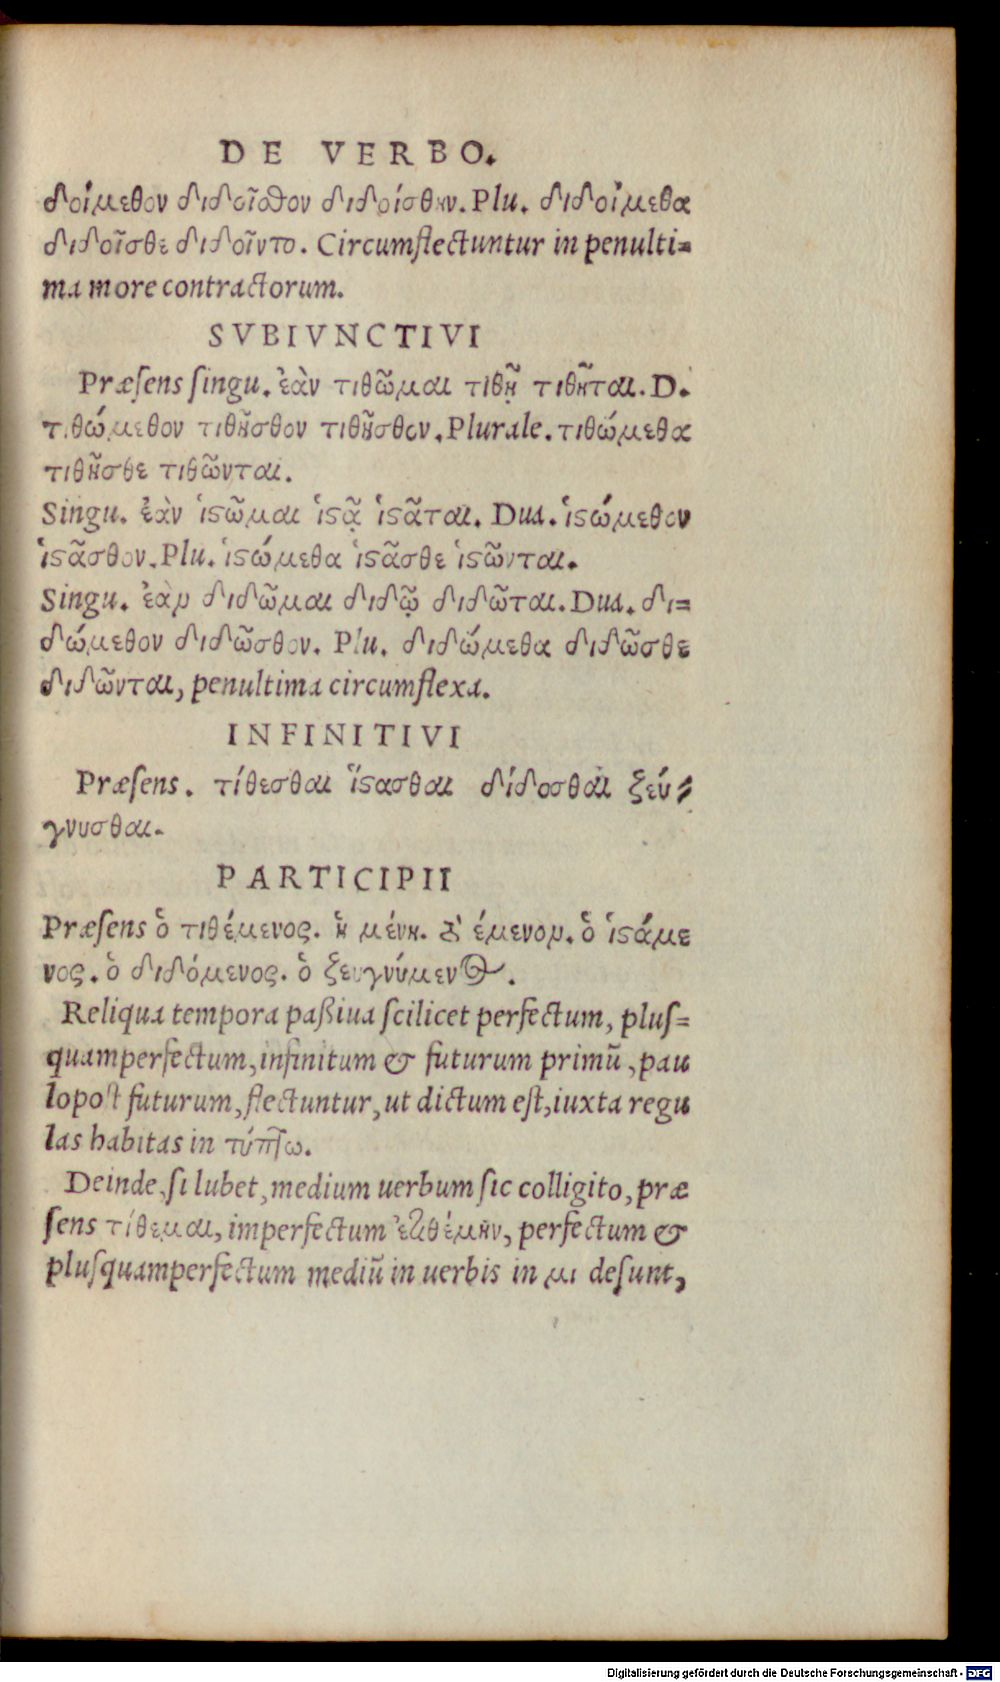 DE VERBO.
δοίμεθον διδοῖσθον διδοίσθην. Plu. διδοίμεθα
διδοῖσθε διδοῖντο. Circumflectuntur in penulti=
ma more contractorum.
SVBIVNCTIVI
Præſens ſingu. ἐὰν τιθῶμαι τιθῇ τιθῆται. D.
τιθώμεθον τιθῆσθον τιθῆσθον. Plurale. τιθώμεθα
τιθῆσθε τιθῶνται.
Singu. ἐὰν ἱϛῶμαι ἱϛᾷ ἱϛᾶται. Dua. ἱϛώμεθον
ἱϛᾶσθον. Plu. ἱϛώμεθα ἱϛᾶσθε ἱϛῶνται.
Singu. ἐὰν διδῶμαι διδῷ διδῶται. Dua. δι=
δώμεθον διδῶσθον. Plu. διδώμεθα διδῶσθε
διδῶνται, penultima circumflexa.
INFINITIVI
Præſens. τίθεσθαι ἵϛασθαι δίδοσθαι ξεύ=
γνυσθαι.
PARTICIPII
Præſens ὁ τιθέμενος. ἡ μένη. τὸ έμενον. ὁ ἱϛάμε
νος. ὁ διδόμενος. ὁ ξευγνύμενος.
Reliqua tempora paßiua ſcilicet perfectum, pluſ=
quamperfectum, infinitum & futurum primũ, pau
lopoſt futurum, flectuntur, ut dictum eſt, iuxta regu
las habitas in τύπτω.
Deinde, ſi lubet, medium uerbum ſic colligito, præ
ſens τίθεμαι, imperfectum ἐτιθέμην, perfectum &
pluſquamperfectum mediũ in uerbis in μι deſunt,
Digitalisierung gefördert durch die Deutsche Forschungsgemeinschaft - DFG